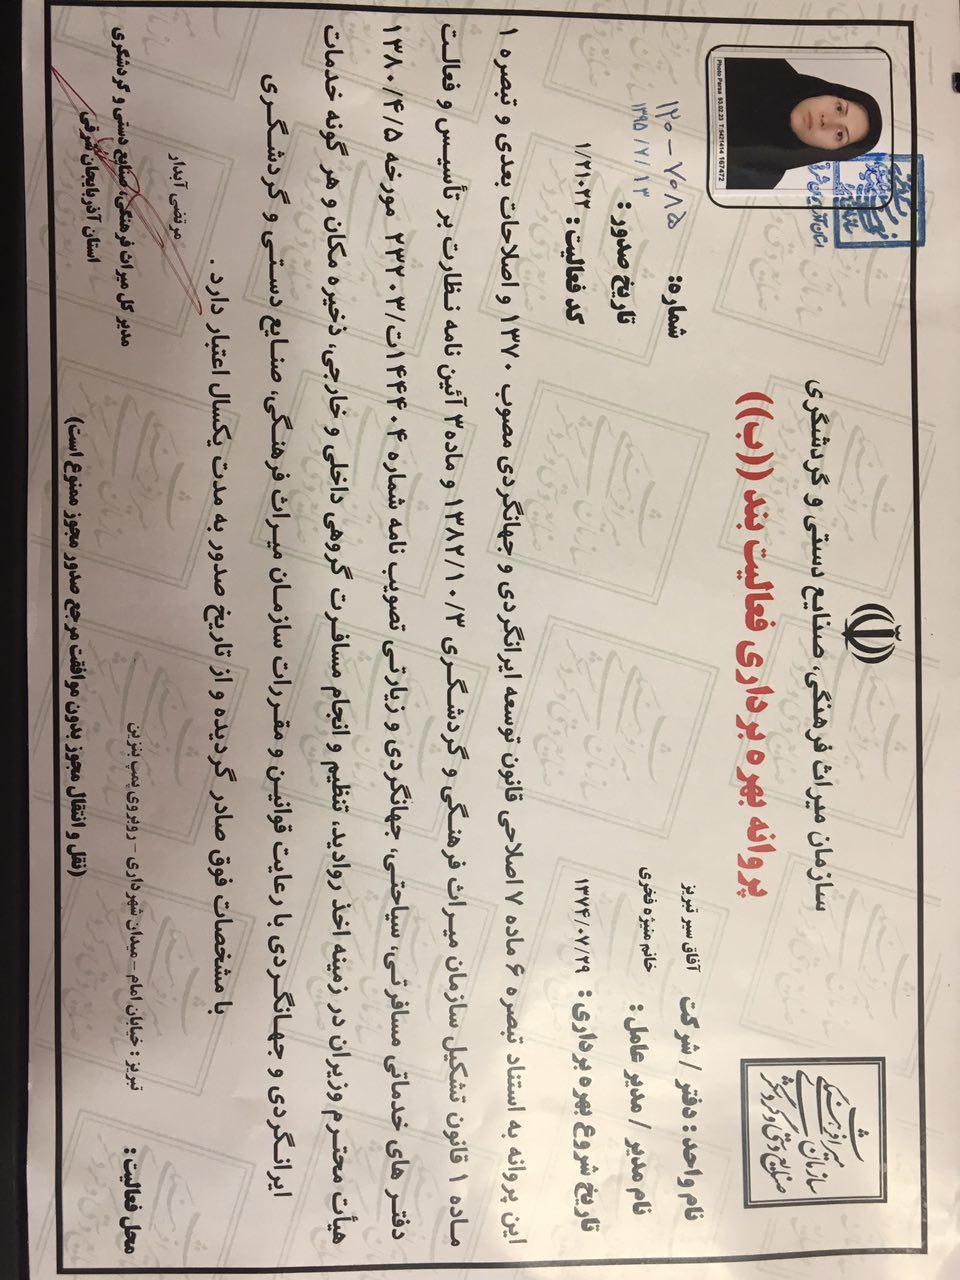 سازمان میراث فرهنگی، صنایع دستی و گردشگری
پروانه بهره برداری فعالیت بند ((ب))
شماره: ۱۲۰-۷۰۸۵
تاریخ صدور: ۱۳۹۵/۲/۱۳
کد فعالیت: ۱/۲۱۰۲۲
Photo Parsa 93.02.23 T:5421414 167472
سازمان میراث فرهنگی
صنایع دستی و گردشگری
نام واحد: دفتر / شرکت آفاق سیر تبریز
نام مدیر / مدیر عامل: خانم منیژه فخری
تاریخ شروع بهره برداری: ۱۳۷۴/۰۷/۲۹
این پروانه به استناد تبصره ۶ ماده ۷ اصلاحی قانون توسعه ایرانگردی و جهانگردی مصوب ۱۳۷۰ و اصلاحات بعدی و تبصره ۱
ماده ۱ قانون تشکیل سازمان میراث فرهنگی و گردشگری ۱۳۸۲/۱۰/۳ و ماده ۳ آئین نامه نظارت بر تأسیس و فعالیت
دفتر های خدماتی مسافرتی، سیاحتی، جهانگردی و زیارتی تصویب نامه شماره ۱۴۴۰۴ت/۲۳۲۰۳ مورخه ۱۳۸۰/۴/۵
هیأت محترم وزیران در زمینه اخذ روادید، تنظیم و انجام مسافرت گروهی داخلی و خارجی، ذخیره مکان و هر گونه خدمات
ایرانگردی و جهانگردی با رعایت قوانین و مقررات سازمان میراث فرهنگی، صنایع دستی و گردشگری
با مشخصات فوق صادر گردیده و از تاریخ صدور به مدت یکسال اعتبار دارد.
مرتضی آبدار
مدیر کل میراث فرهنگی، صنایع دستی و گردشگری
استان آذربایجان شرقی
محل فعالیت: تبریز: خیابان امام - میدان شهرداری - روبروی پمپ بنزین
(نقل و انتقال مجوز بدون موافقت مرجع صدور مجوز ممنوع است)